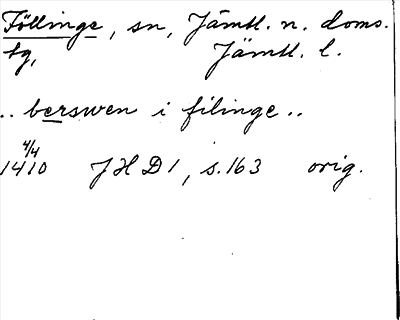 Föllinge, sn, Jämtl. n. doms.
tg, Jämtl. l.
.. berswen i filinge ..
4/4
1410 JHD 1, s. 163 orig.